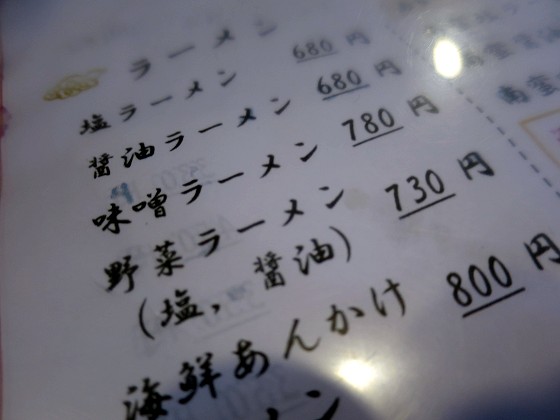 ラーメン
塩ラーメン 680円
醤油ラーメン 680円
味噌ラーメン 780円
野菜ラーメン 730円
(塩, 醤油)
海鮮あんかけ 800円
メン